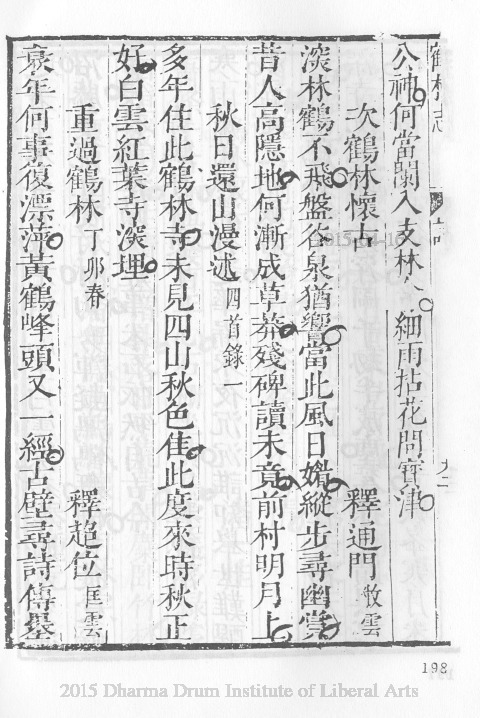 鶴林志
公神何當闌入支林 細雨拈花問寶津
次鶴林懷古 釋通門 牧雲
深林鶴不飛盤谷泉猶響當此風日媚縱步尋幽賞
昔人高隱地何漸成草莽殘碑讀未竟前村明月上
秋日還山漫述 四首錄一
多年住此鶴林寺未見四山秋色佳此度來時秋正
好白雲紅葉寺深埋
重過鶴林 丁卯春 釋超位 匡雲
衰年何事復漂萍黃鶴峰頭又一經古壁尋詩傳墨
198
2015 Dharma Drum Institute of Liberal Arts